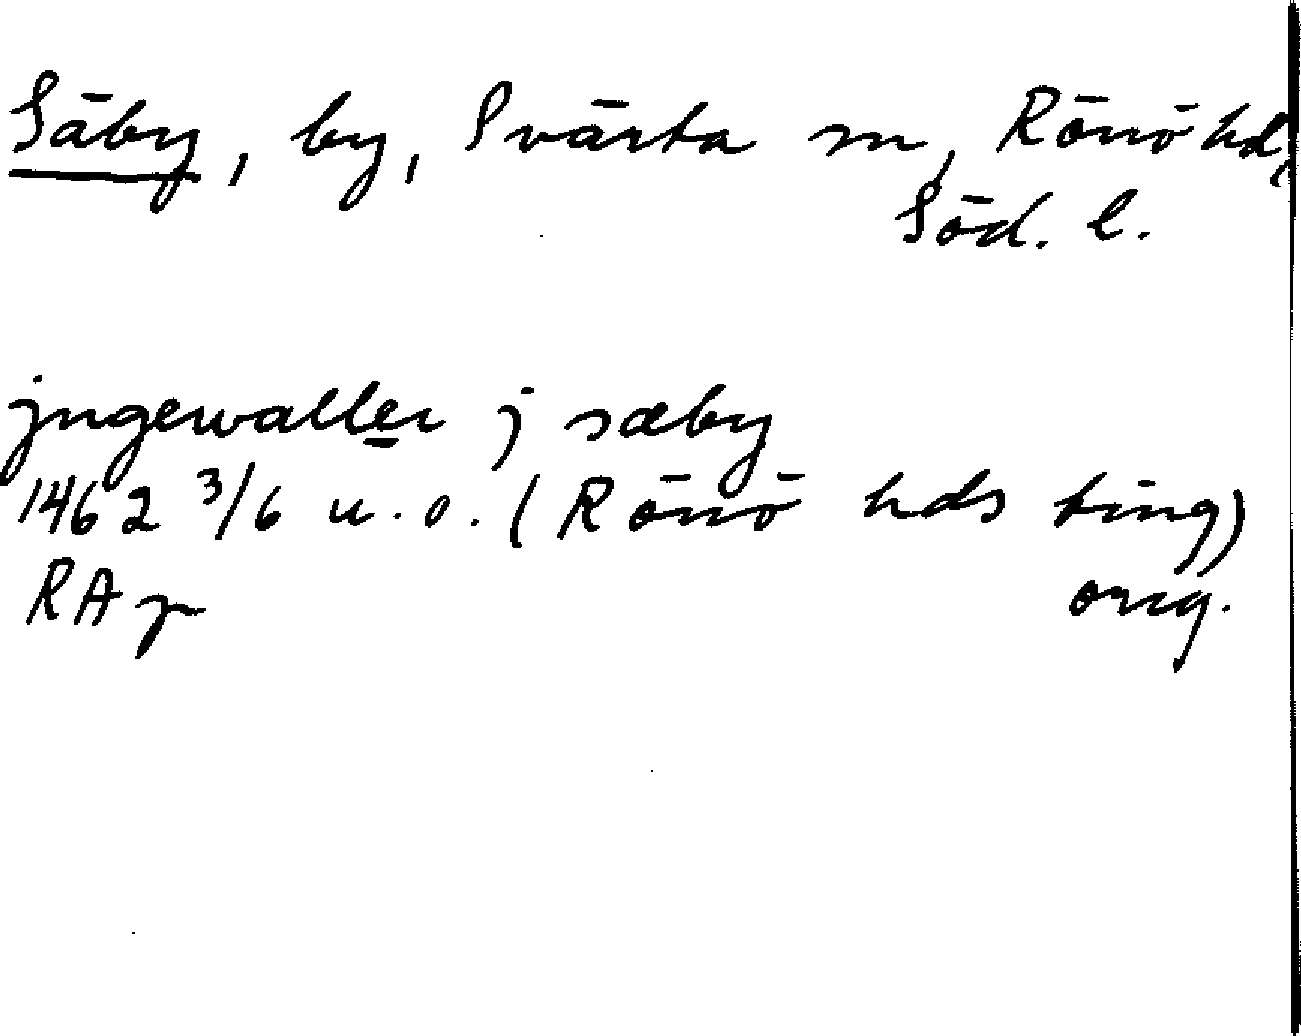 Säby, by, Svärta sn, Rönö hd,
Söd. l.
jngewaller j sæby
1462 3/6 u.o. (Rönö hds ting)
RAp orig.